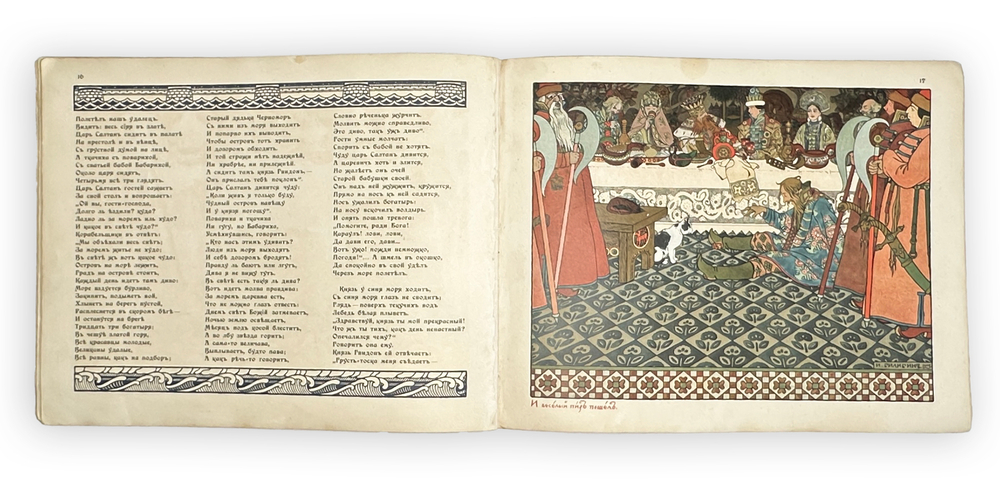 16
Полетѣлъ нашъ удалецъ.
Видитъ: весь сіяя въ златѣ,
Царь Салтанъ сидитъ въ палатѣ
На престолѣ и въ вѣнцѣ,
Съ грустной думой на лицѣ,
А ткачиха съ поварихой,
Съ сватьей бабой Бабарихой,
Около царя сидятъ,
Четырьмя всѣ три глядятъ.
Царь Салтанъ гостей сажаетъ
За свой столъ и вопрошаетъ:
„Ой вы, гости-господа,
Долго ль ѣздили? куда?
Ладно ль за моремъ иль худо?
И какое въ свѣтѣ чудо?"
Корабельщики въ отвѣтъ:
„Мы объѣхали весь свѣтъ;
За моремъ житье не худо;
Въ свѣтѣ жъ вотъ какое чудо:
Островъ на морѣ лежитъ,
Градъ на островѣ стоитъ,
Каждый день идетъ тамъ диво:
Море вздуется бурливо,
Закипитъ, подыметъ вой,
Хлынетъ на берегъ пустой,
Расплеснется въ скоромъ бѣгѣ—
И останутся на брегѣ
Тридцать три богатыря;
Въ чешуѣ златой горя,
Всѣ красавцы молодые,
Великаны удалые,
Всѣ равны, какъ на подборъ;
Старый дядька Черноморъ
Съ ними изъ моря выходитъ
И попарно ихъ выводитъ,
Чтобы островъ тотъ хранить
И дозоромъ обходить.
И той стражи нѣтъ надежнѣй,
Ни храбрѣе, ни прилежнѣй.
А сидитъ тамъ князь Гвидонъ,—
Онъ прислалъ тебѣ поклонъ".
Царь Салтанъ дивится чуду:
„Коли живъ я только буду,
Чудный островъ навѣщу
И у князя погощу".
Повариха и ткачиха
Ни гугу, но Бабариха,
Усмѣхнувшись, говоритъ:
„Кто насъ этимъ удивитъ?
Люди изъ моря выходятъ
И себѣ дозоромъ бродятъ!
Правду ль баютъ или лгутъ,
Дива я не вижу тутъ.
Въ свѣтѣ есть такія ль дива?
Вотъ идетъ молва правдива:
За моремъ царевна есть,
Что не можно глазъ отвесть:
Днемъ свѣтъ Божій затмеваетъ,
Ночью землю освѣщаетъ,
Мѣсяцъ подъ косой блеститъ,
А во лбу звѣзда горитъ;
А сама-то величава,
Выплываетъ, будто пава;
А какъ рѣчь-то говоритъ,
Словно рѣченька журчитъ.
Молвить можно справедливо,
Это диво, такъ ужъ диво".
Гости умные молчатъ:
Спорить съ бабой не хотятъ.
Чуду царь Салтанъ дивится,
А царевичъ хоть и злится,
Но жалѣетъ онъ очей
Старой бабушки своей.
Онъ надъ ней жужжитъ, кружится,
Прямо на носъ къ ней садится,
Носъ ужалилъ богатырь:
На носу вскочилъ волдырь.
И опять пошла тревога:
„Помогите, ради Бога!
Караулъ! лови, лови,
Да дави его, дави...
Вотъ ужо! пожди немножко,
Погоди!"... А шмель въ окошко,
Да спокойно въ свой удѣлъ
Черезъ море полетѣлъ.
Князь у синя моря ходитъ,
Съ синя моря глазъ не сводитъ;
Глядь—поверхъ текучихъ водъ
Лебедь бѣлая плыветъ.
„Здравствуй, князь ты мой прекрасный!
Что жъ ты тихъ, какъ день ненастный?
Опечалился чему?"
Говоритъ она ему.
Князь Гвидонъ ей отвѣчаетъ:
„Грусть-тоска меня съѣдаетъ—
17
И. БИЛИБИНЪ
И веселый пиръ пошелъ.